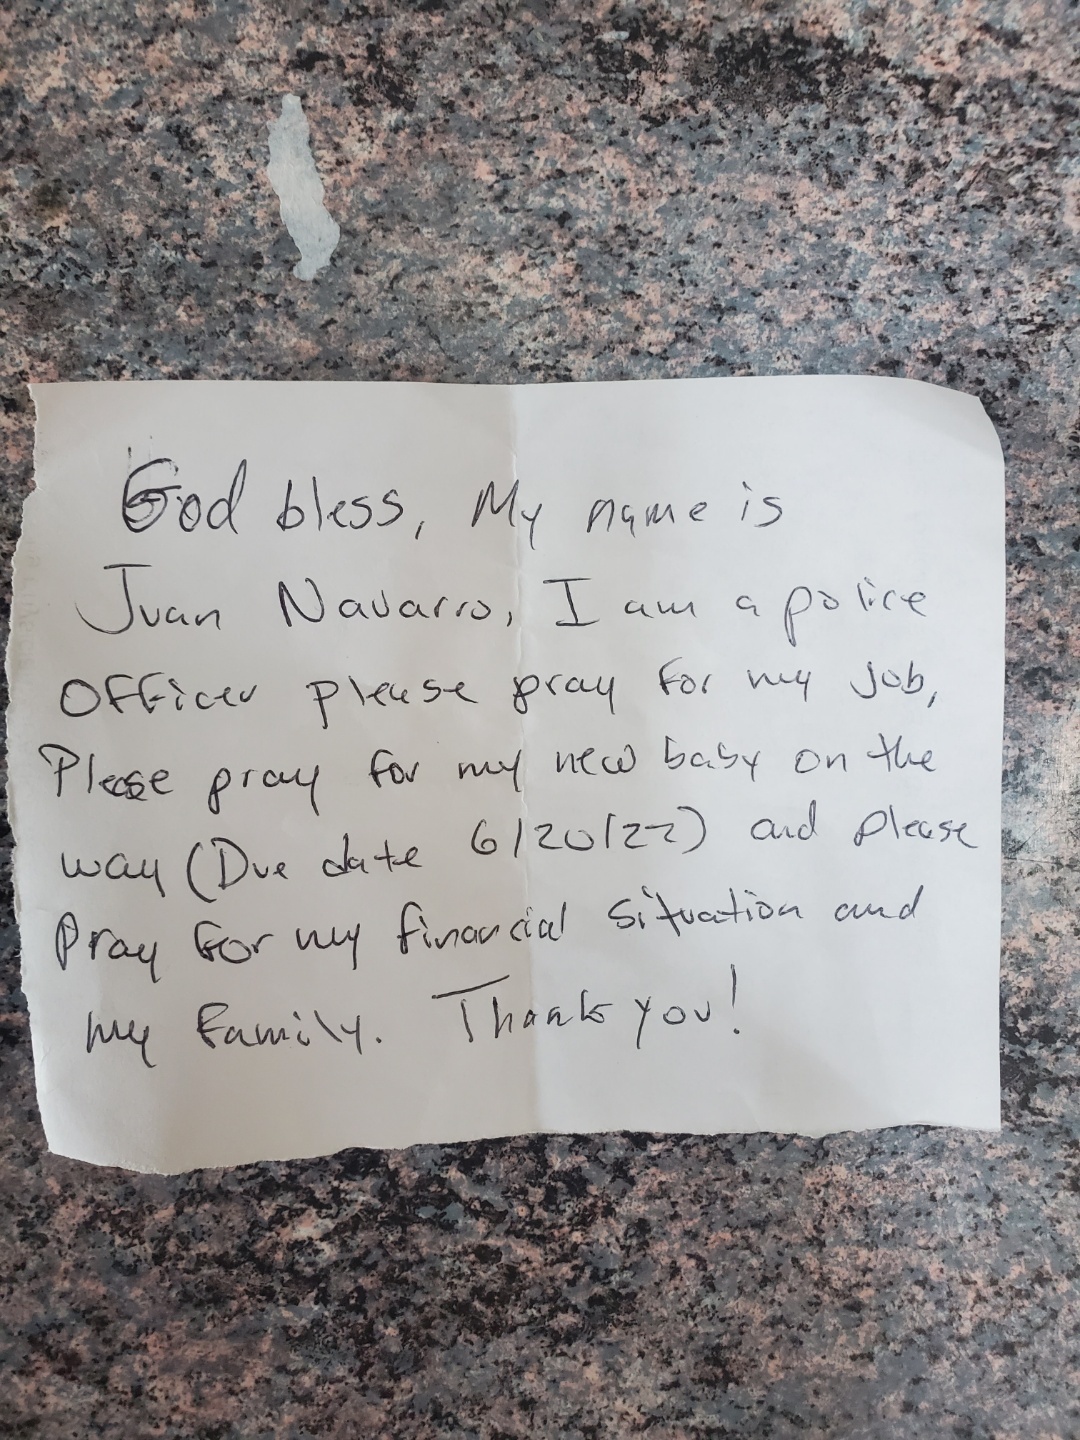 God bless, My name is
Juan Navarro, I am a police
Officer please pray for my job,
Please pray for my new baby on the
way (Due date 6/20/22) and please
Pray for my financial situation and
my family. Thank you!